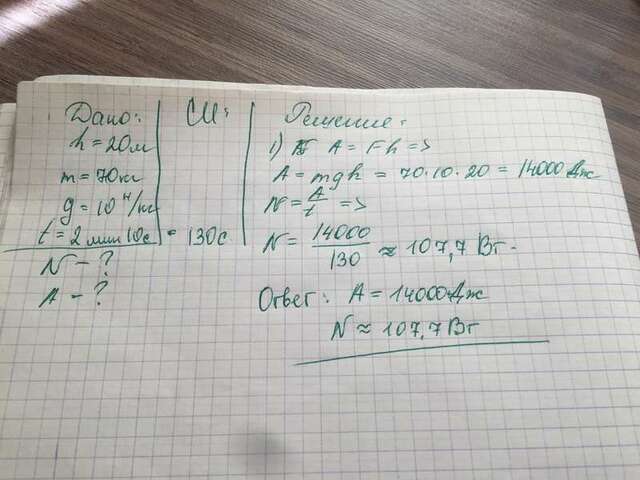 Дано:
h = 20м
m = 70кг
g = 10 Н/кг
t = 2 мин 10с
N - ?
A - ?
СИ:
= 130с
Решение:
1) A = Fh =>
A = mgh = 70·10·20 = 14000 Дж
N = A/t =>
N = 14000/130 ≈ 107,7 Вт.
Ответ: A = 14000 Дж
N ≈ 107,7 Вт